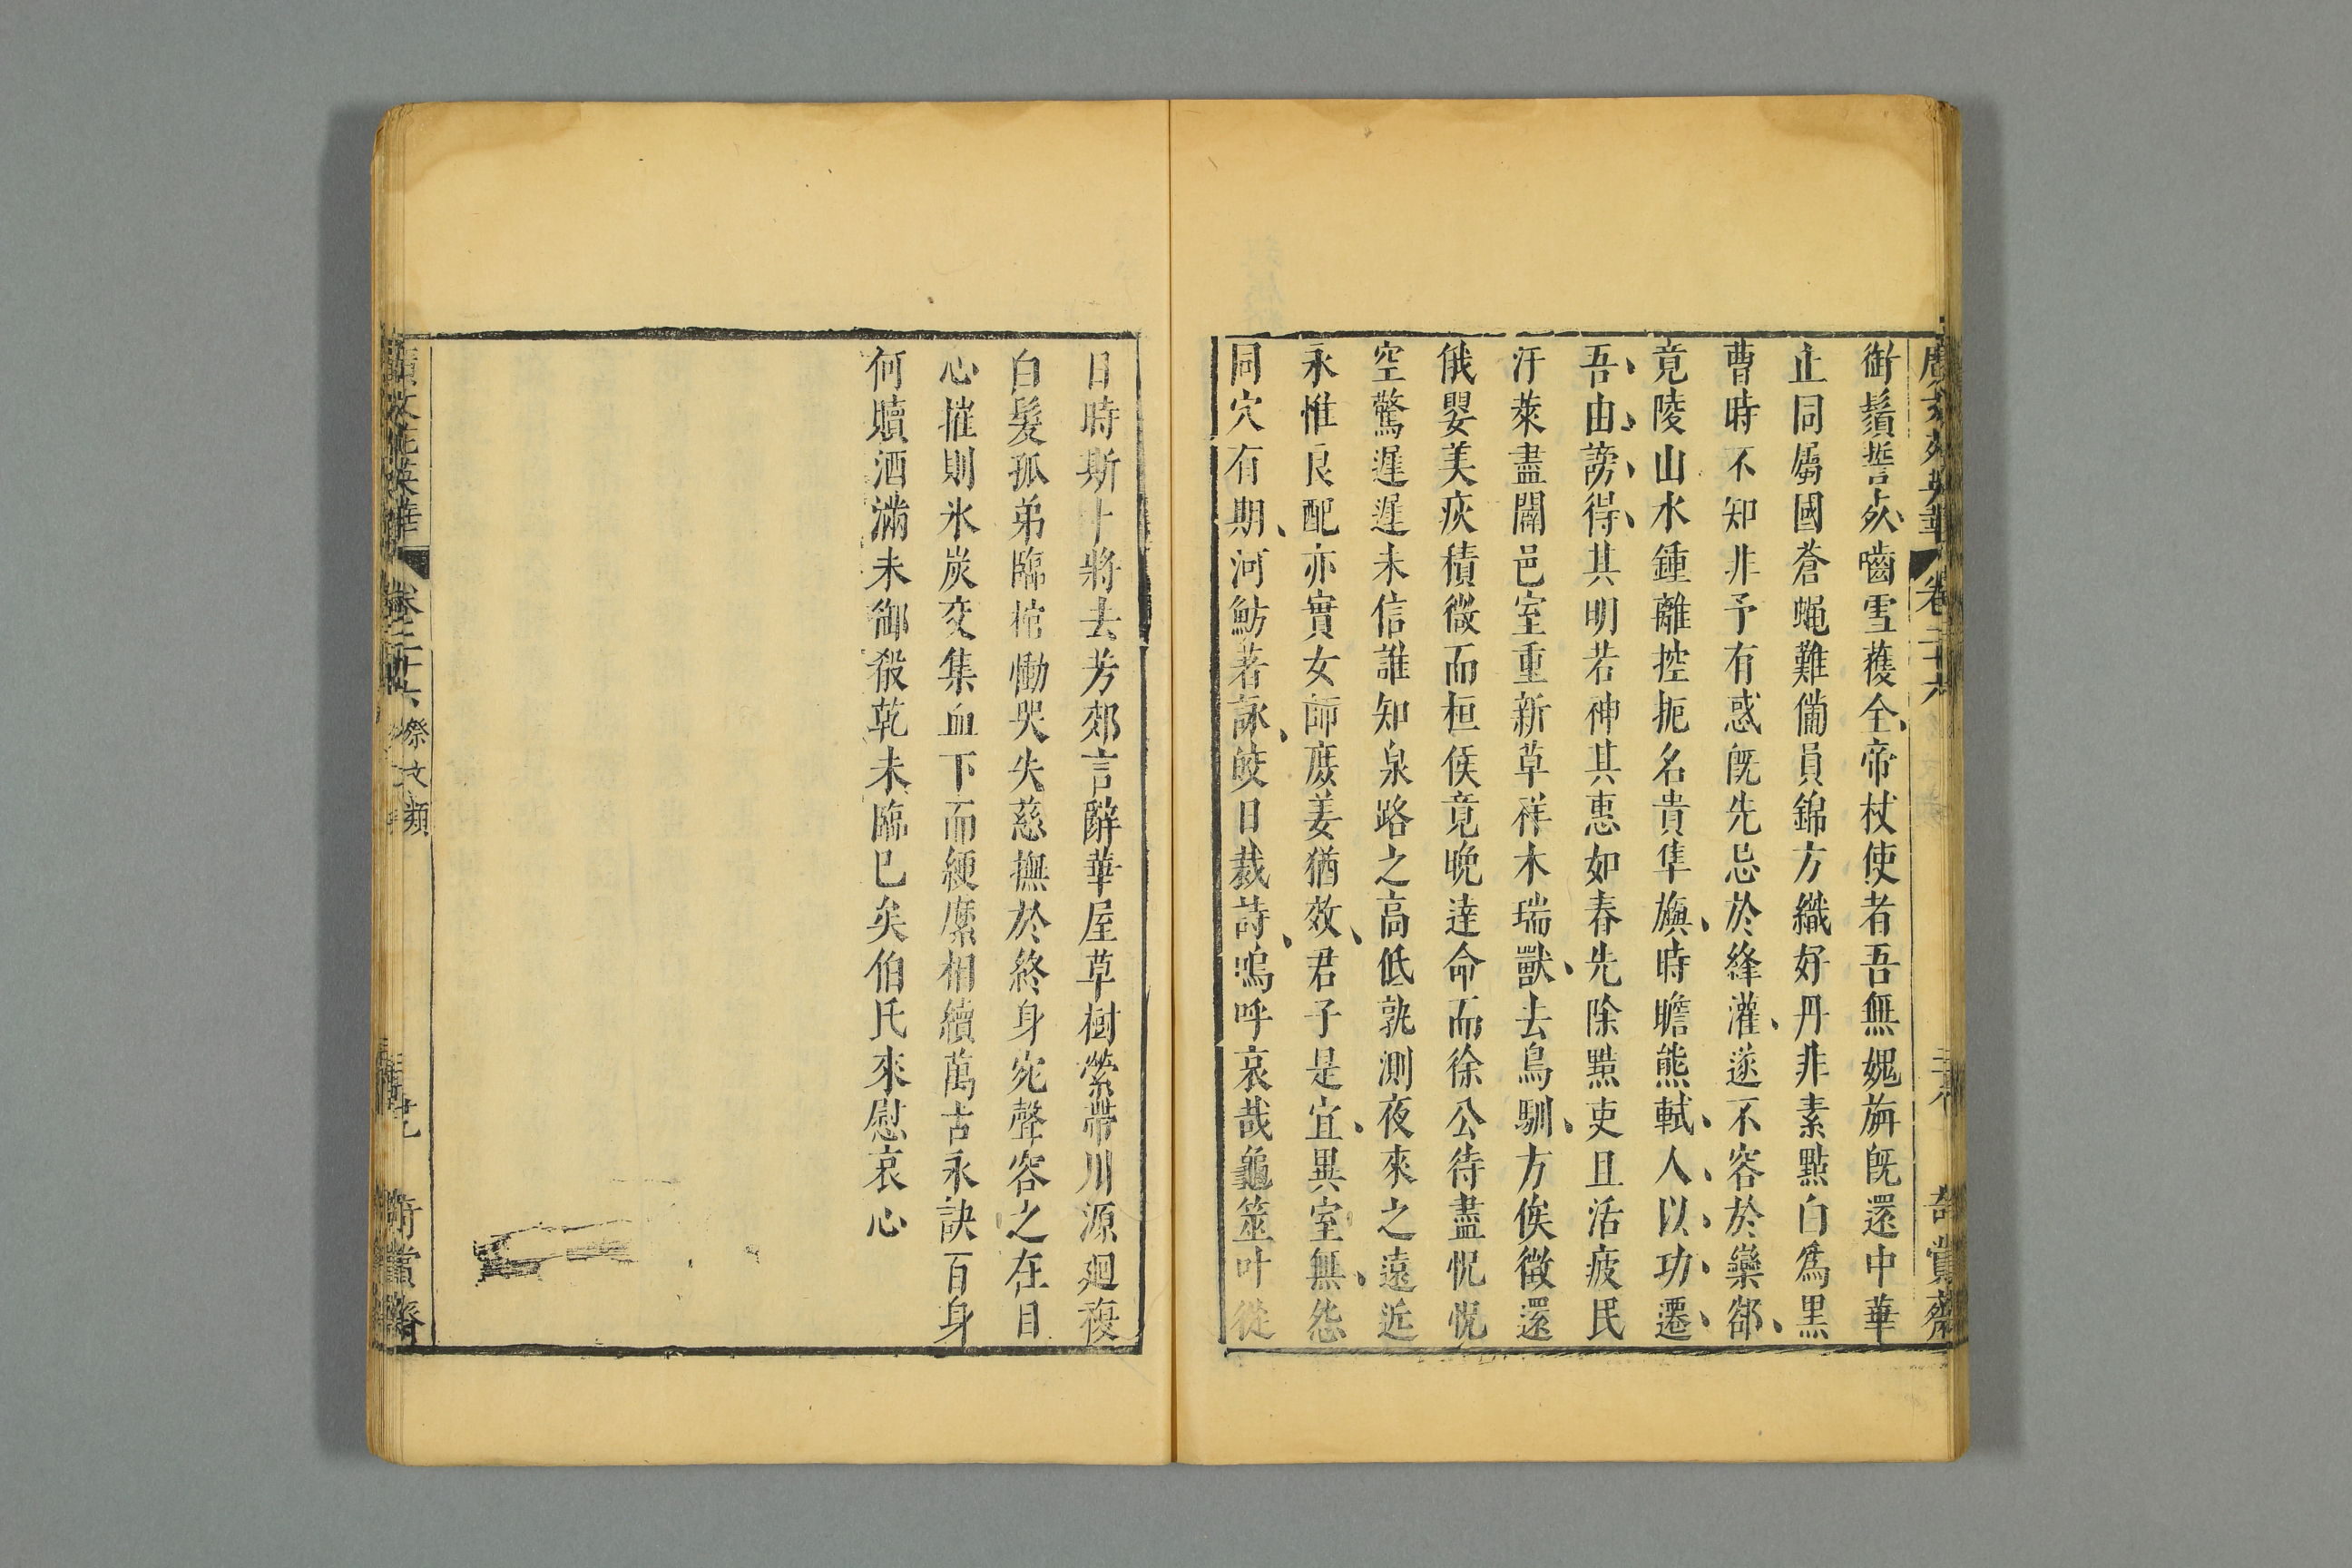 廣文苑英華 卷二十六 奇賞齋
銜鬚誓死嚙雪獲全帝杖使者吾無媿旃旣還中華
止同屬國蒼蝿難備員錦方織好丹非素黠白爲黑
曹時不知非予有惑旣先忌於絳灌遂不容於欒郤
竟陵山水鍾離控扼名貴隼旟時瞻熊軾人以功遷
吾由謗得其明若神其惠如春先除黠吏且活疲民
汙萊盡闢邑室重新草祥木瑞獸去鳥馴方俟徵還
俄嬰美疢積微而桓侯竟晚達命而徐公待盡怳惚
空驚遲遲未信誰知泉路之高低孰測夜來之遠近
永惟良配亦實女師庶姜猶效君子是宜異室無怨
同穴有期河魴著詠皎日裁詩嗚呼哀哉龜筮叶從
日時斯卜將去芳郊言辭華屋草樹縈帶川源廻複
白髮孤弟臨棺慟哭失慈撫於終身宛聲容之在目
心摧則氷炭交集血下而綆縻相續萬古永訣百身
何贖酒滿未御殽乾未臨巳矣伯氏來慰哀心
續文苑英華 卷二十六 祭文類 奇賞齋